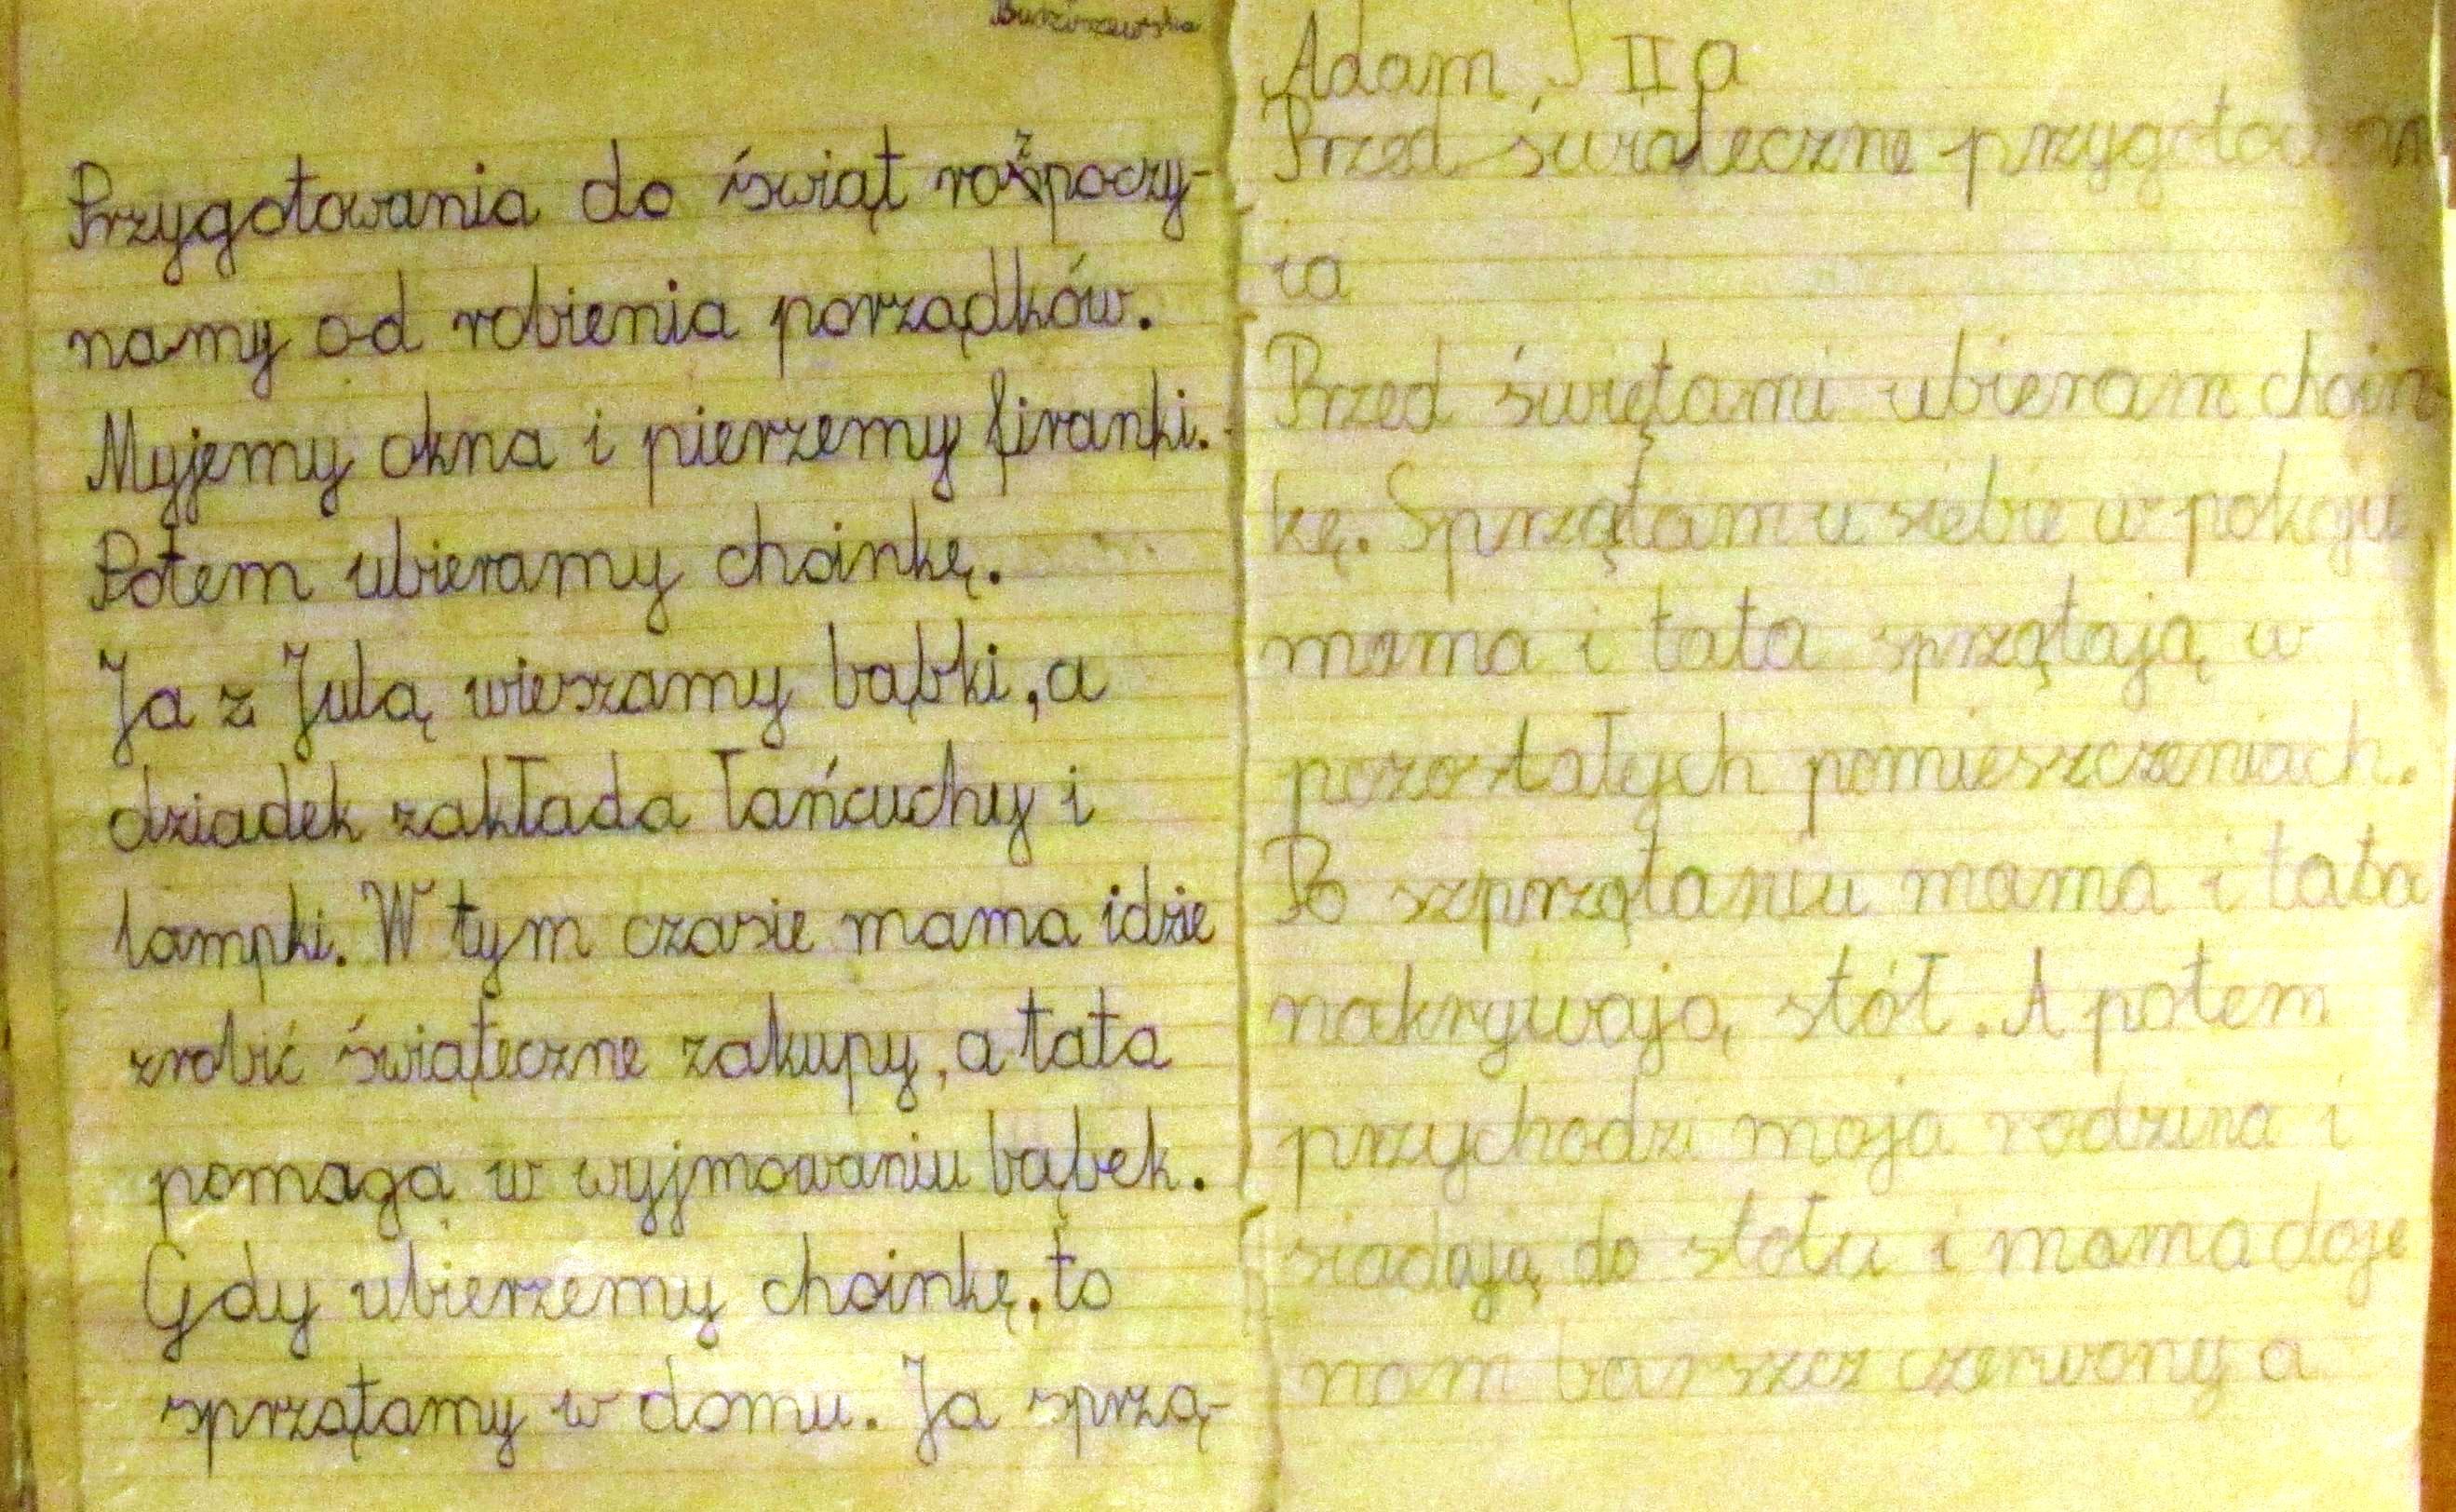 Budziszewska
Przygotowania do świąt rozpoczy-
namy od robienia porządków.
Myjemy okna i pierzemy firanki.
Potem ubieramy choinkę.
Ja z Julą wieszamy bąbki, a
dziadek zakłada łańcuchy i
lampki. W tym czasie mama idzie
zrobić świąteczne zakupy, a tata
pomaga w wyjmowaniu bąbek.
Gdy ubierzemy choinkę, to
sprzątamy w domu. Ja sprzą-
Adam J IIa
Przed świąteczne przygotowan
ia
Przed świętami ubieram choin-
kę. Sprzątam u siebie w pokoju
mama i tata sprzątają w
pozostałych pomieszczeniach.
Po szprzątaniu mama i tata
nakrywają stół. A potem
przychodzi moja rodzina i
siadają do stołu i mama daje
nam barszcz czerwony a